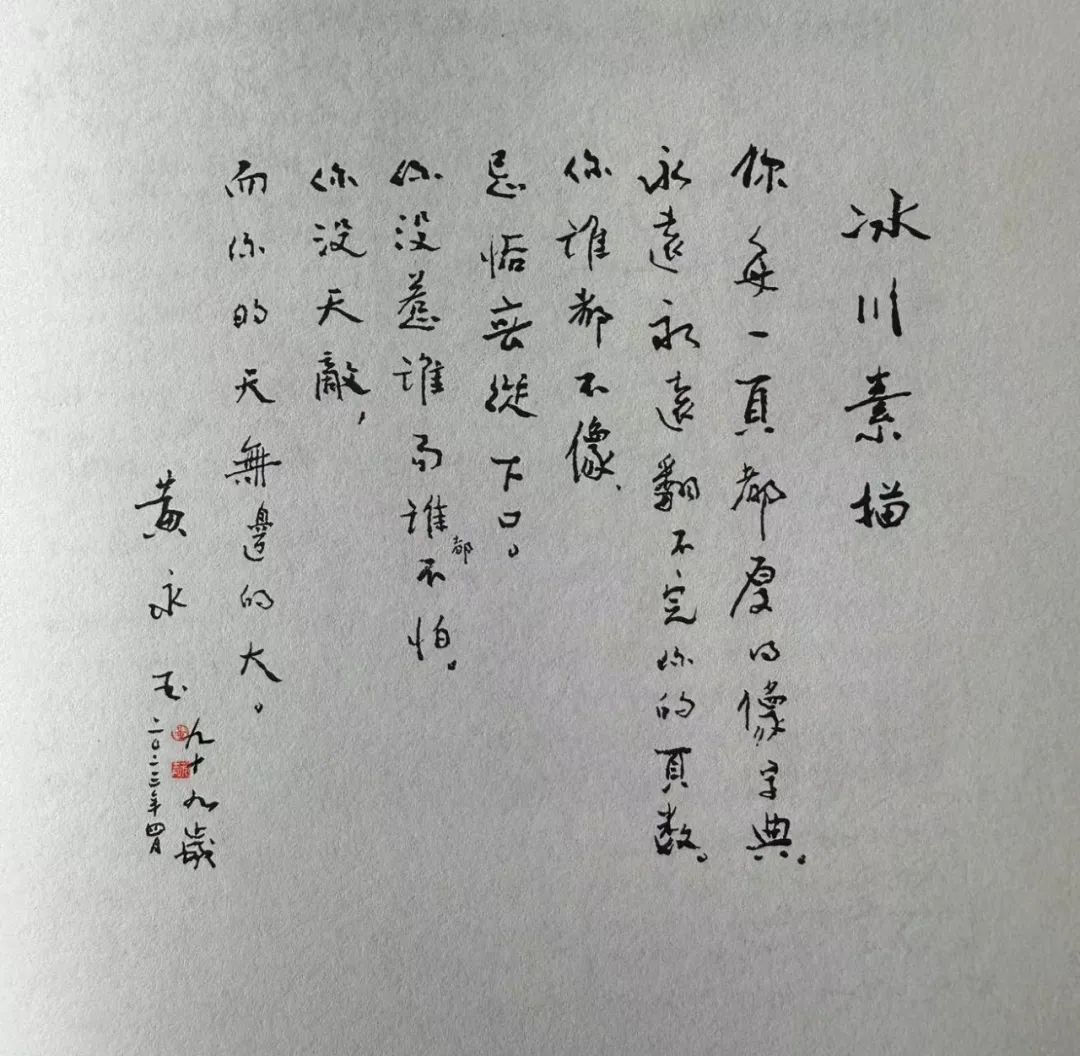 冰川素描
你每一頁都厚得像字典。
永遠永遠翻不完你的頁數。
你誰都不像,
忌無從下口。
你没惹誰而誰都不怕。
你没天敵,
而你的天無邊的大。
黄永玉
九十九歲
二〇二三年四月